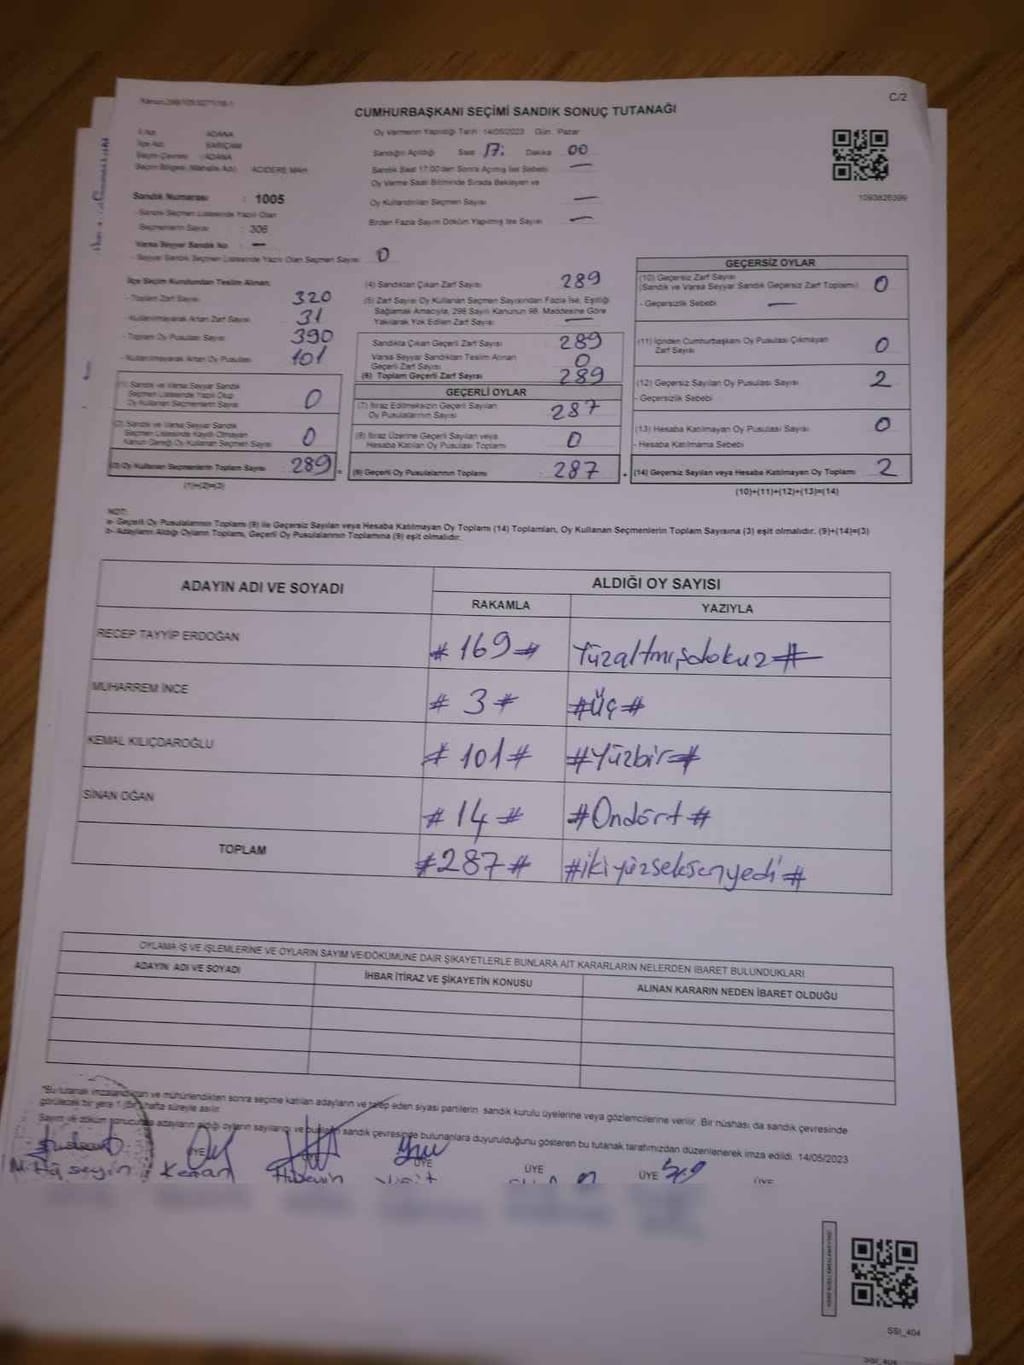 C/2
CUMHURBAŞKANI SEÇİMİ SANDIK SONUÇ TUTANAĞI
İl Adı : ADANA
İlçe Adı : SARIÇAM
Seçim Çevresi : ADANA
Seçim Bölgesi (Mahalle Adı) : ACIDERE MAH
Sandık Numarası : 1005
- Sandık Seçmen Listesinde Yazılı Olan
Seçmenlerin Sayısı : 306
Varsa Seyyar Sandık No : —
- Seyyar Sandık Seçmen Listesinde Yazılı Olan Seçmen Sayısı : 0
Oy Vermenin Yapıldığı Tarih : 14/05/2023 Gün : Pazar
Sandığın Açıldığı Saat 17: Dakika 00
Sandık Saat 17:00'den Sonra Açılmış İse Sebebi : —
Oy Verme Saati Bitiminde Sırada Bekleyen ve
Oy Kullandırılan Seçmen Sayısı : —
Birden Fazla Sayım Döküm Yapılmış İse Sayısı : —
1093826399
İlçe Seçim Kurulundan Teslim Alınan;
- Toplam Zarf Sayısı : 320
- Kullanılmayarak Artan Zarf Sayısı : 31
- Toplam Oy Pusulası Sayısı : 390
- Kullanılmayarak Artan Oy Pusulası : 101
(1) Sandık ve Varsa Seyyar Sandık
Seçmen Listesinde Yazılı Olup
Oy Kullanan Seçmenlerin Sayısı : 0
(2) Sandık ve Varsa Seyyar Sandık
Seçmen Listesinde Kaydı Olmayan
Kanun Gereği Oy Kullanan Seçmen Sayısı : 0
(3) Oy Kullanan Seçmenlerin Toplam Sayısı : 289
(1)+(2)=(3)
(4) Sandıktan Çıkan Zarf Sayısı : 289
(5) Zarf Sayısı Oy Kullanan Seçmen Sayısından Fazla İse, Eşitliği
Sağlamak Amacıyla, 298 Sayılı Kanunun 98. Maddesine Göre
Yakılarak Yok Edilen Zarf Sayısı : —
Sandıkta Çıkan Geçerli Zarf Sayısı : 289
Varsa Seyyar Sandıktan Teslim Alınan
Geçerli Zarf Sayısı : 0
(6) Toplam Geçerli Zarf Sayısı : 289
GEÇERLİ OYLAR
(7) İtiraz Edilmeksizin Geçerli Sayılan
Oy Pusulalarının Sayısı : 287
(8) İtiraz Üzerine Geçerli Sayılan veya
Hesaba Katılan Oy Pusulası Toplamı : 0
(9) Geçerli Oy Pusulalarının Toplamı : 287
GEÇERSİZ OYLAR
(10) Geçersiz Zarf Sayısı
(Sandık ve Varsa Seyyar Sandık Geçersiz Zarf Toplamı) : 0
- Geçersizlik Sebebi : —
(11) İçinden Cumhurbaşkanı Oy Pusulası Çıkmayan
Zarf Sayısı : 0
(12) Geçersiz Sayılan Oy Pusulası Sayısı : 2
- Geçersizlik Sebebi :
(13) Hesaba Katılmayan Oy Pusulası Sayısı : 0
- Hesaba Katılmama Sebebi :
(14) Geçersiz Sayılan veya Hesaba Katılmayan Oy Toplamı : 2
(10)+(11)+(12)+(13)=(14)
NOT:
a- Geçerli Oy Pusulalarının Toplamı (9) ile Geçersiz Sayılan veya Hesaba Katılmayan Oy Toplamı (14) Toplamları, Oy Kullanan Seçmenlerin Toplam Sayısına (3) eşit olmalıdır. (9)+(14)=(3)
b- Adayların Aldığı Oyların Toplamı, Geçerli Oy Pusulalarının Toplamına (9) eşit olmalıdır.
ADAYIN ADI VE SOYADI
ALDIĞI OY SAYISI
RAKAMLA YAZIYLA
RECEP TAYYİP ERDOĞAN # 169 # Yüzaltmışdokuz #
MUHARREM İNCE # 3 # #Üç#
KEMAL KILIÇDAROĞLU # 101 # #Yüzbir#
SİNAN OĞAN # 14 # #Ondört#
TOPLAM #287# #ikiyüzseksenyedi#
OYLAMA İŞ VE İŞLEMLERİNE VE OYLARIN SAYIM VE DÖKÜMÜNE DAİR ŞİKAYETLERLE BUNLARA AİT KARARLARIN NELERDEN İBARET BULUNDUKLARI
ADAYIN ADI VE SOYADI İHBAR İTİRAZ VE ŞİKAYETİN KONUSU ALINAN KARARIN NEDEN İBARET OLDUĞU
"Bu tutanak imzalandıktan ve mühürlendikten sonra seçime katılan adayların ve talep eden siyasi partilerin sandık kurulu üyelerine veya gözlemcilerine verilir. Bir nüshası da sandık çevresinde
görülecek bir yere 1 (bir) hafta süreyle asılır.
Sayım ve döküm sonucunda adayların aldığı oyların sayılarını ve bunların sandık çevresinde bulunanlara duyurulduğunu gösteren bu tutanak tarafımızdan düzenlenerek imza edildi. 14/05/2023
ÜYE ÜYE ÜYE ÜYE ÜYE
Kenan
SSI_404